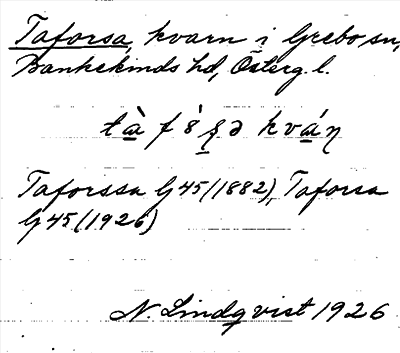 Taforsa, kvarn i Grebo sn,
Bankekinds hd, Österg. l.
kván
Taforssa G45 (1882), Taforsa
G45 (1926)
N. Lindqvist 1926